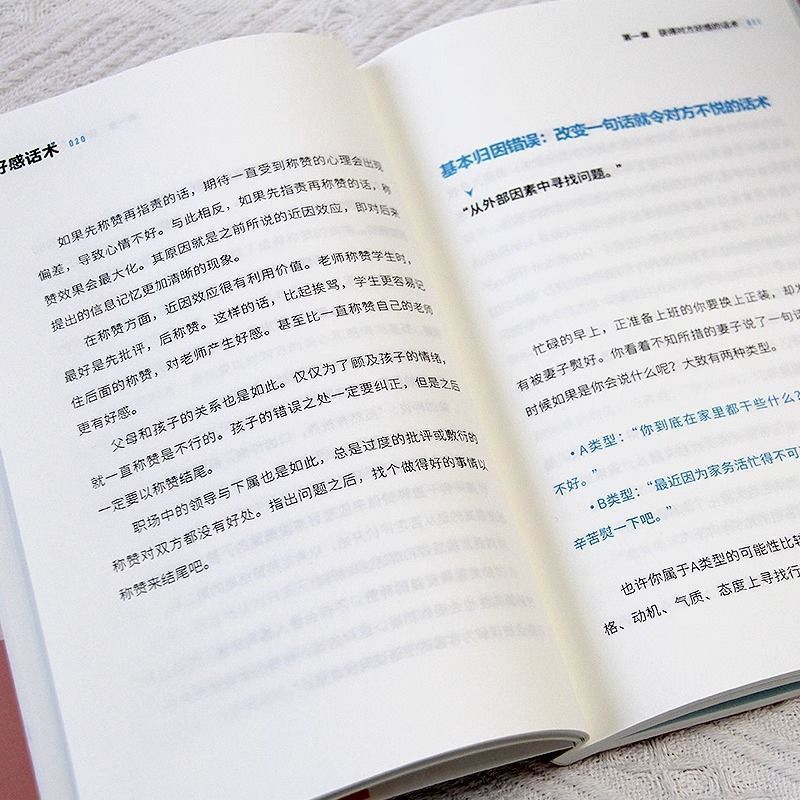 好感话术 020
如果先称赞再指责的话，期待一直受到称赞的心理会出现
偏差，导致心情不好。与此相反，如果先指责再称赞的话，称
赞效果会最大化。其原因就是之前所说的近因效应，即对后来
提出的信息记忆更加清晰的现象。
在称赞方面，近因效应很有利用价值。老师称赞学生时，
最好是先批评，后称赞。这样的话，比起挨骂，学生更容易记
住后面的称赞，对老师产生好感。甚至比一直称赞自己的老师
更有好感。
父母和孩子的关系也是如此。仅仅为了顾及孩子的情绪，
就一直称赞是不行的。孩子的错误之处一定要纠正，但是之后
一定要以称赞结尾。
职场中的领导与下属也是如此，总是过度的批评或敷衍的
称赞对双方都没有好处。指出问题之后，找个做得好的事情以
称赞来结尾吧。
第一章 获得对方好感的话术
基本归因错误：改变一句话就令对方不悦的话术
“从外部因素中寻找问题。”
忙碌的早上，正准备上班的你要换上正装，却
有被妻子熨好。你看着不知所措的妻子说了一句话
时候如果是你会说什么呢？大致有两种类型。
• A类型：“你到底在家里都干些什么？
不好。”
• B类型：“最近因为家务活忙得不可
辛苦熨一下吧。”
也许你属于A类型的可能性比较
格、动机、气质、态度上寻找行